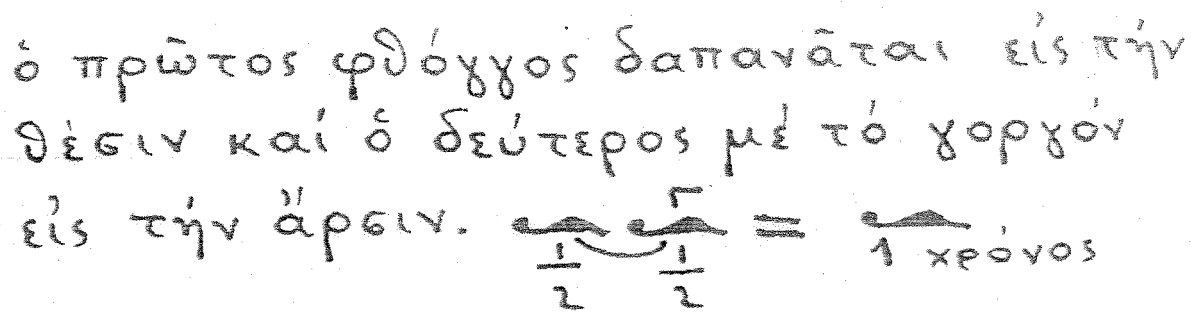 ὁ πρῶτος φθόγγος δαπανᾶται εἰς τήν
θέσιν καί ὁ δεύτερος μέ τό γοργόν
εἰς τήν ἄρσιν. 1/2 1/2 = 1 χρόνος